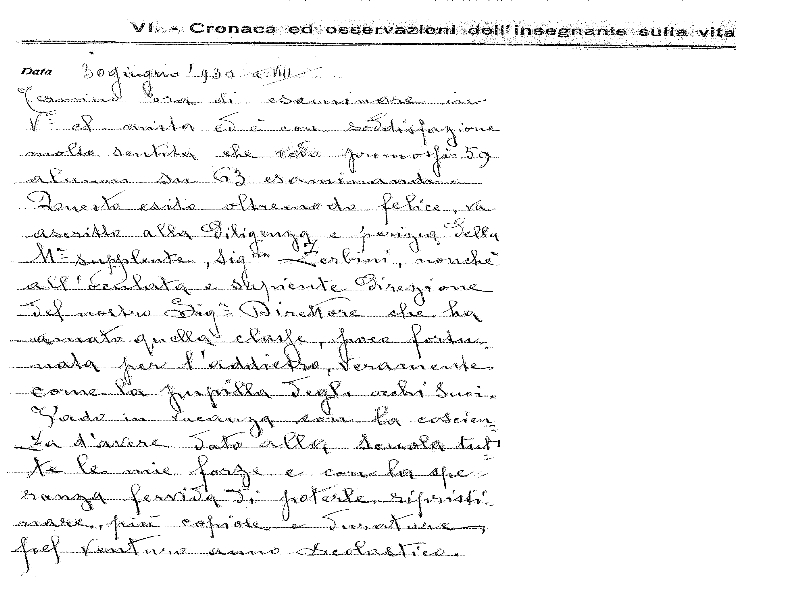 VI. - Cronaca ed osservazioni dell'insegnante sulla vita
Data 30 giugno 1930 a VIII
Termino ora di esaminare in
Vª cl. mista ed è con soddisfazione
molto sentita che vedo promossi 59
alunni su 63 esaminandi.
Questo esito oltremodo felice, va
ascritto alla diligenza e perizia della
Mª supplente, Signa Zerbini, nonchè
all'oculata e sapiente direzione
del nostro Sigr Direttore che ha
amato quella classe, poco fortu-
nata per l'addietro, veramente
come la pupilla degli occhi suoi.
Vado in vacanza con la coscien-
za d'avere dato alla scuola tut-
te le mie forze e con la spe
ranza fervida di poterle ripristi-
nare, più copiose e durature
pel venturo anno scolastico.